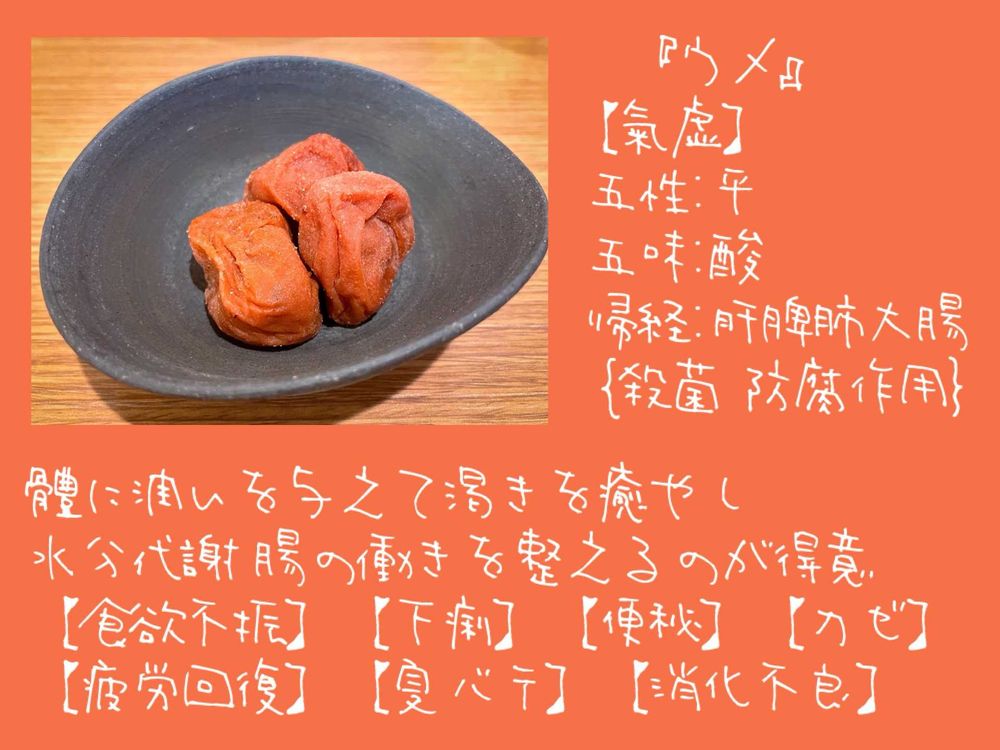 『ウメ』
【氣虚】
五性:平
五味:酸
帰経:肝脾肺大腸
{殺菌 防腐作用}
體に潤いを与えて渇きを癒やし
水分代謝腸の働きを整えるのが得意
【食欲不振】 【下痢】 【便秘】 【カゼ】
【疲労回復】 【夏バテ】 【消化不良】